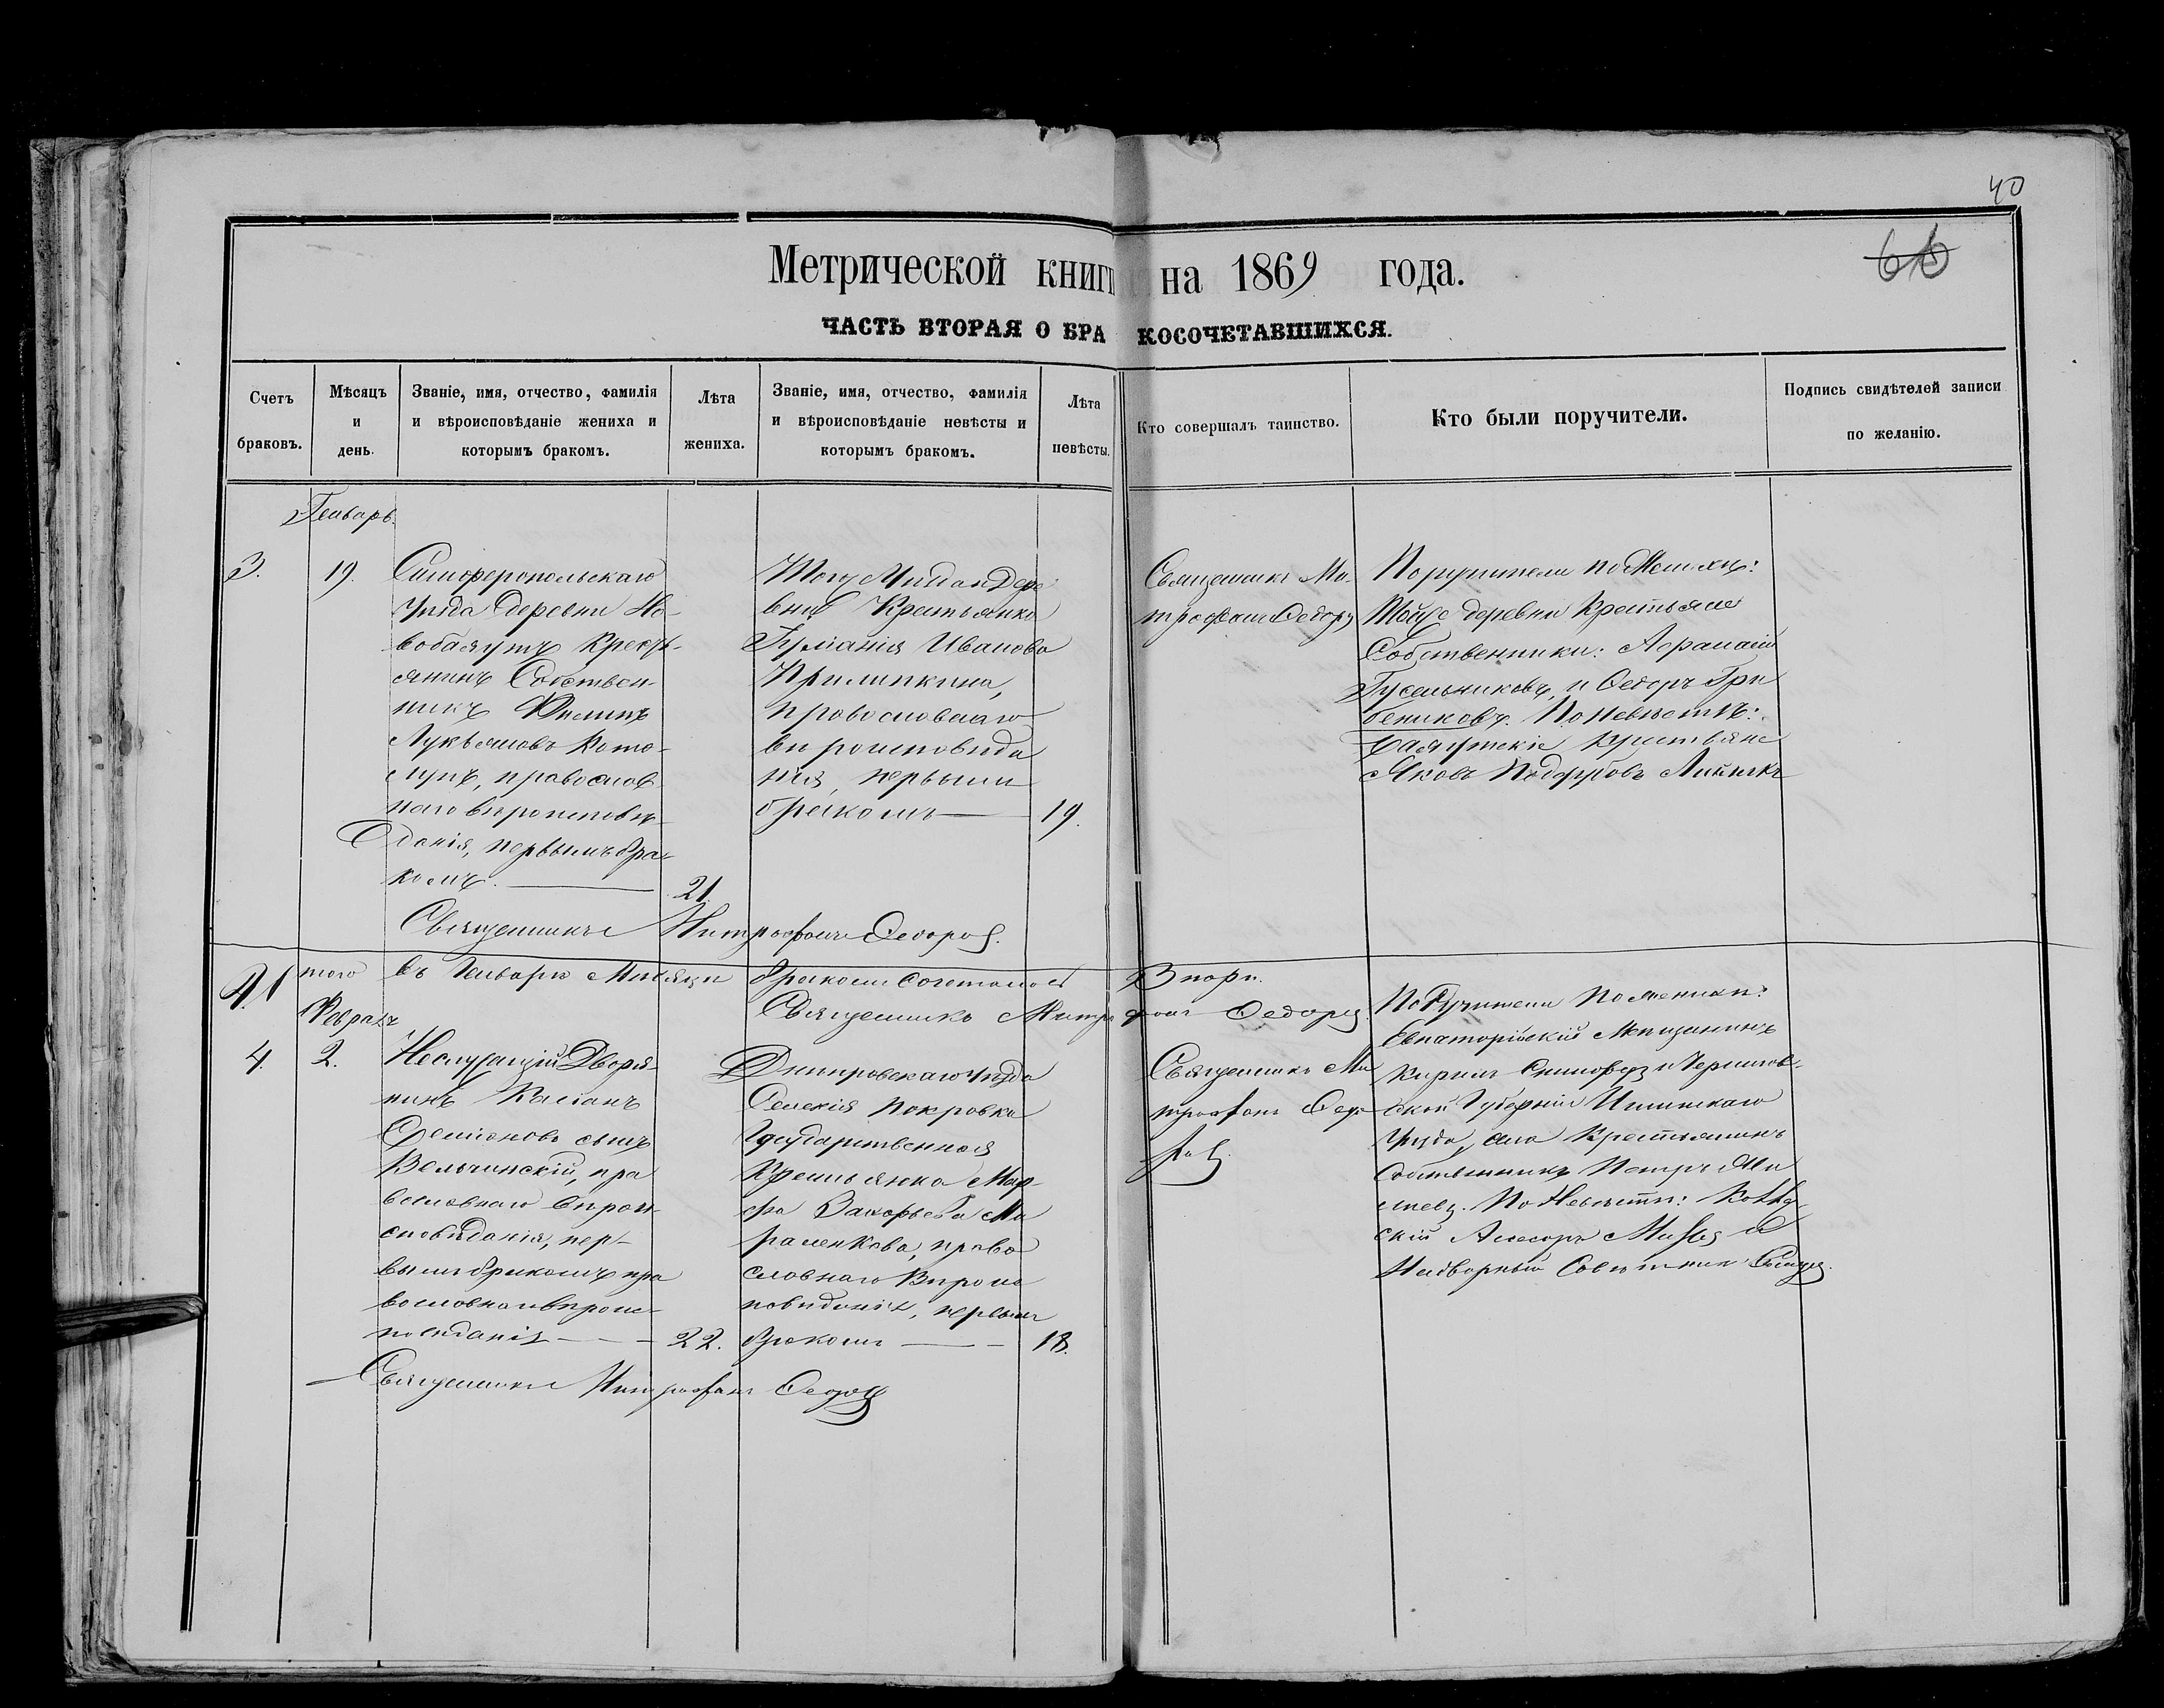 40
66
Метрической книги на 1869 года.
ЧАСТЬ ВТОРАЯ О БРАКОСОЧЕТАВШИХСЯ.
Счетъ браковъ.
Мѣсяцъ и день.
Званіе, имя, отчество, фамилія
и вѣроисповѣданіе жениха и
которымъ бракомъ.
Лѣта жениха.
Званіе, имя, отчество, фамилія
и вѣроисповѣданіе невѣсты и
которымъ бракомъ.
Лѣта невѣсты.
Кто совершалъ таинство.
Кто были поручители.
Подпись свидѣтелей записи
по желанію.
Генварь
3.
19.
Симферопольскаго
уѣзда деревни Но-
вобаягутъ крестъ-
янинъ Собствен-
никъ Филипъ
Лукьяновъ Кото-
лупъ, православ-
наго вѣроисповѣ-
данія, первымъ бра-
комъ.
21.
деревни Крестьянка
Иванова
Прилипкина,
православнаго
вѣроисповѣда
нія, первымъ
бракомъ
19.
Священникъ Ми-
трофанъ Федоров
Поручители по Женихѣ:
Тойже деревни Крестьяне
Собственники: Афанасій
Гусельниковъ, и Федоръ Гри
бениковъ. По Невѣстѣ:
Баягутскіе крестьяне
Яковъ
Священникъ Митрофанъ Федоров.
того въ Генварѣ Мѣсяцѣ бракомъ сочеталось 3 пары.
Священникъ Митрофанъ Федоров
Февраль
4.
2.
Неслужащій Дворя-
нинъ Касіанъ
Семіоновъ сынъ
Вельчинскій, пра
вославнаго вѣрои-
сповѣданія, пер-
вымъ бракомъ пра
вославнаго вѣроис-
повѣданія
22.
Днѣпровскаго уѣзда
Селенія Покровки
Государственная
Крестьянка Мар-
фа Захарьева Ма
раленкова, право
славнаго вѣроис
повѣданія, первымъ
бракомъ
18.
Священникъ Ми
трофанъ Федо
ров
Поручители по женихѣ:
Евпаторійскій Мѣщанинъ
Кирилъ и Чернигов-
ской Губерніи
уѣзда, Крестьянинъ
Собственникъ Петръ
По Невѣстѣ:
скій Асесоръ
Надворный Совѣтникъ
Священникъ Митрофанъ Федоров